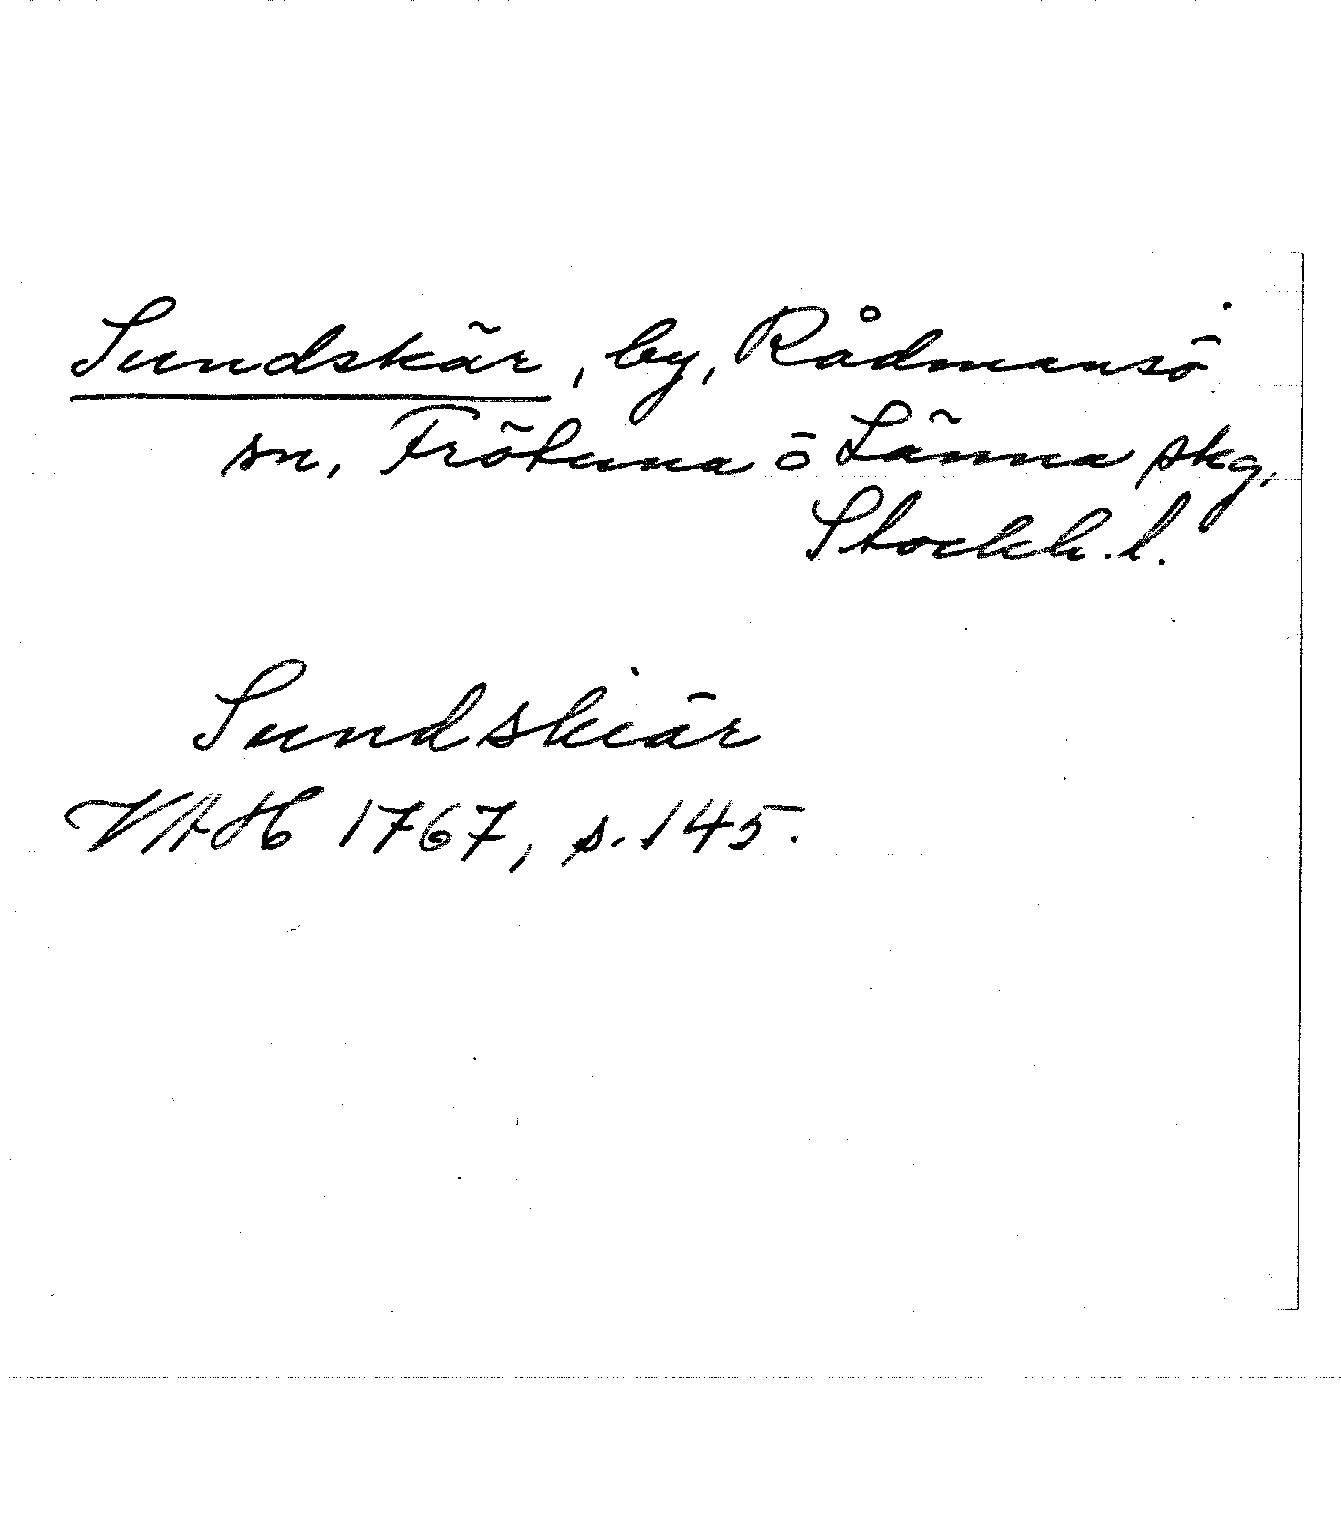 Sundskär, by, Rådmansö
sn, Frötuna o Länna skg,
Stockh. l.
Sundskiär
VAH 1767, s. 145.